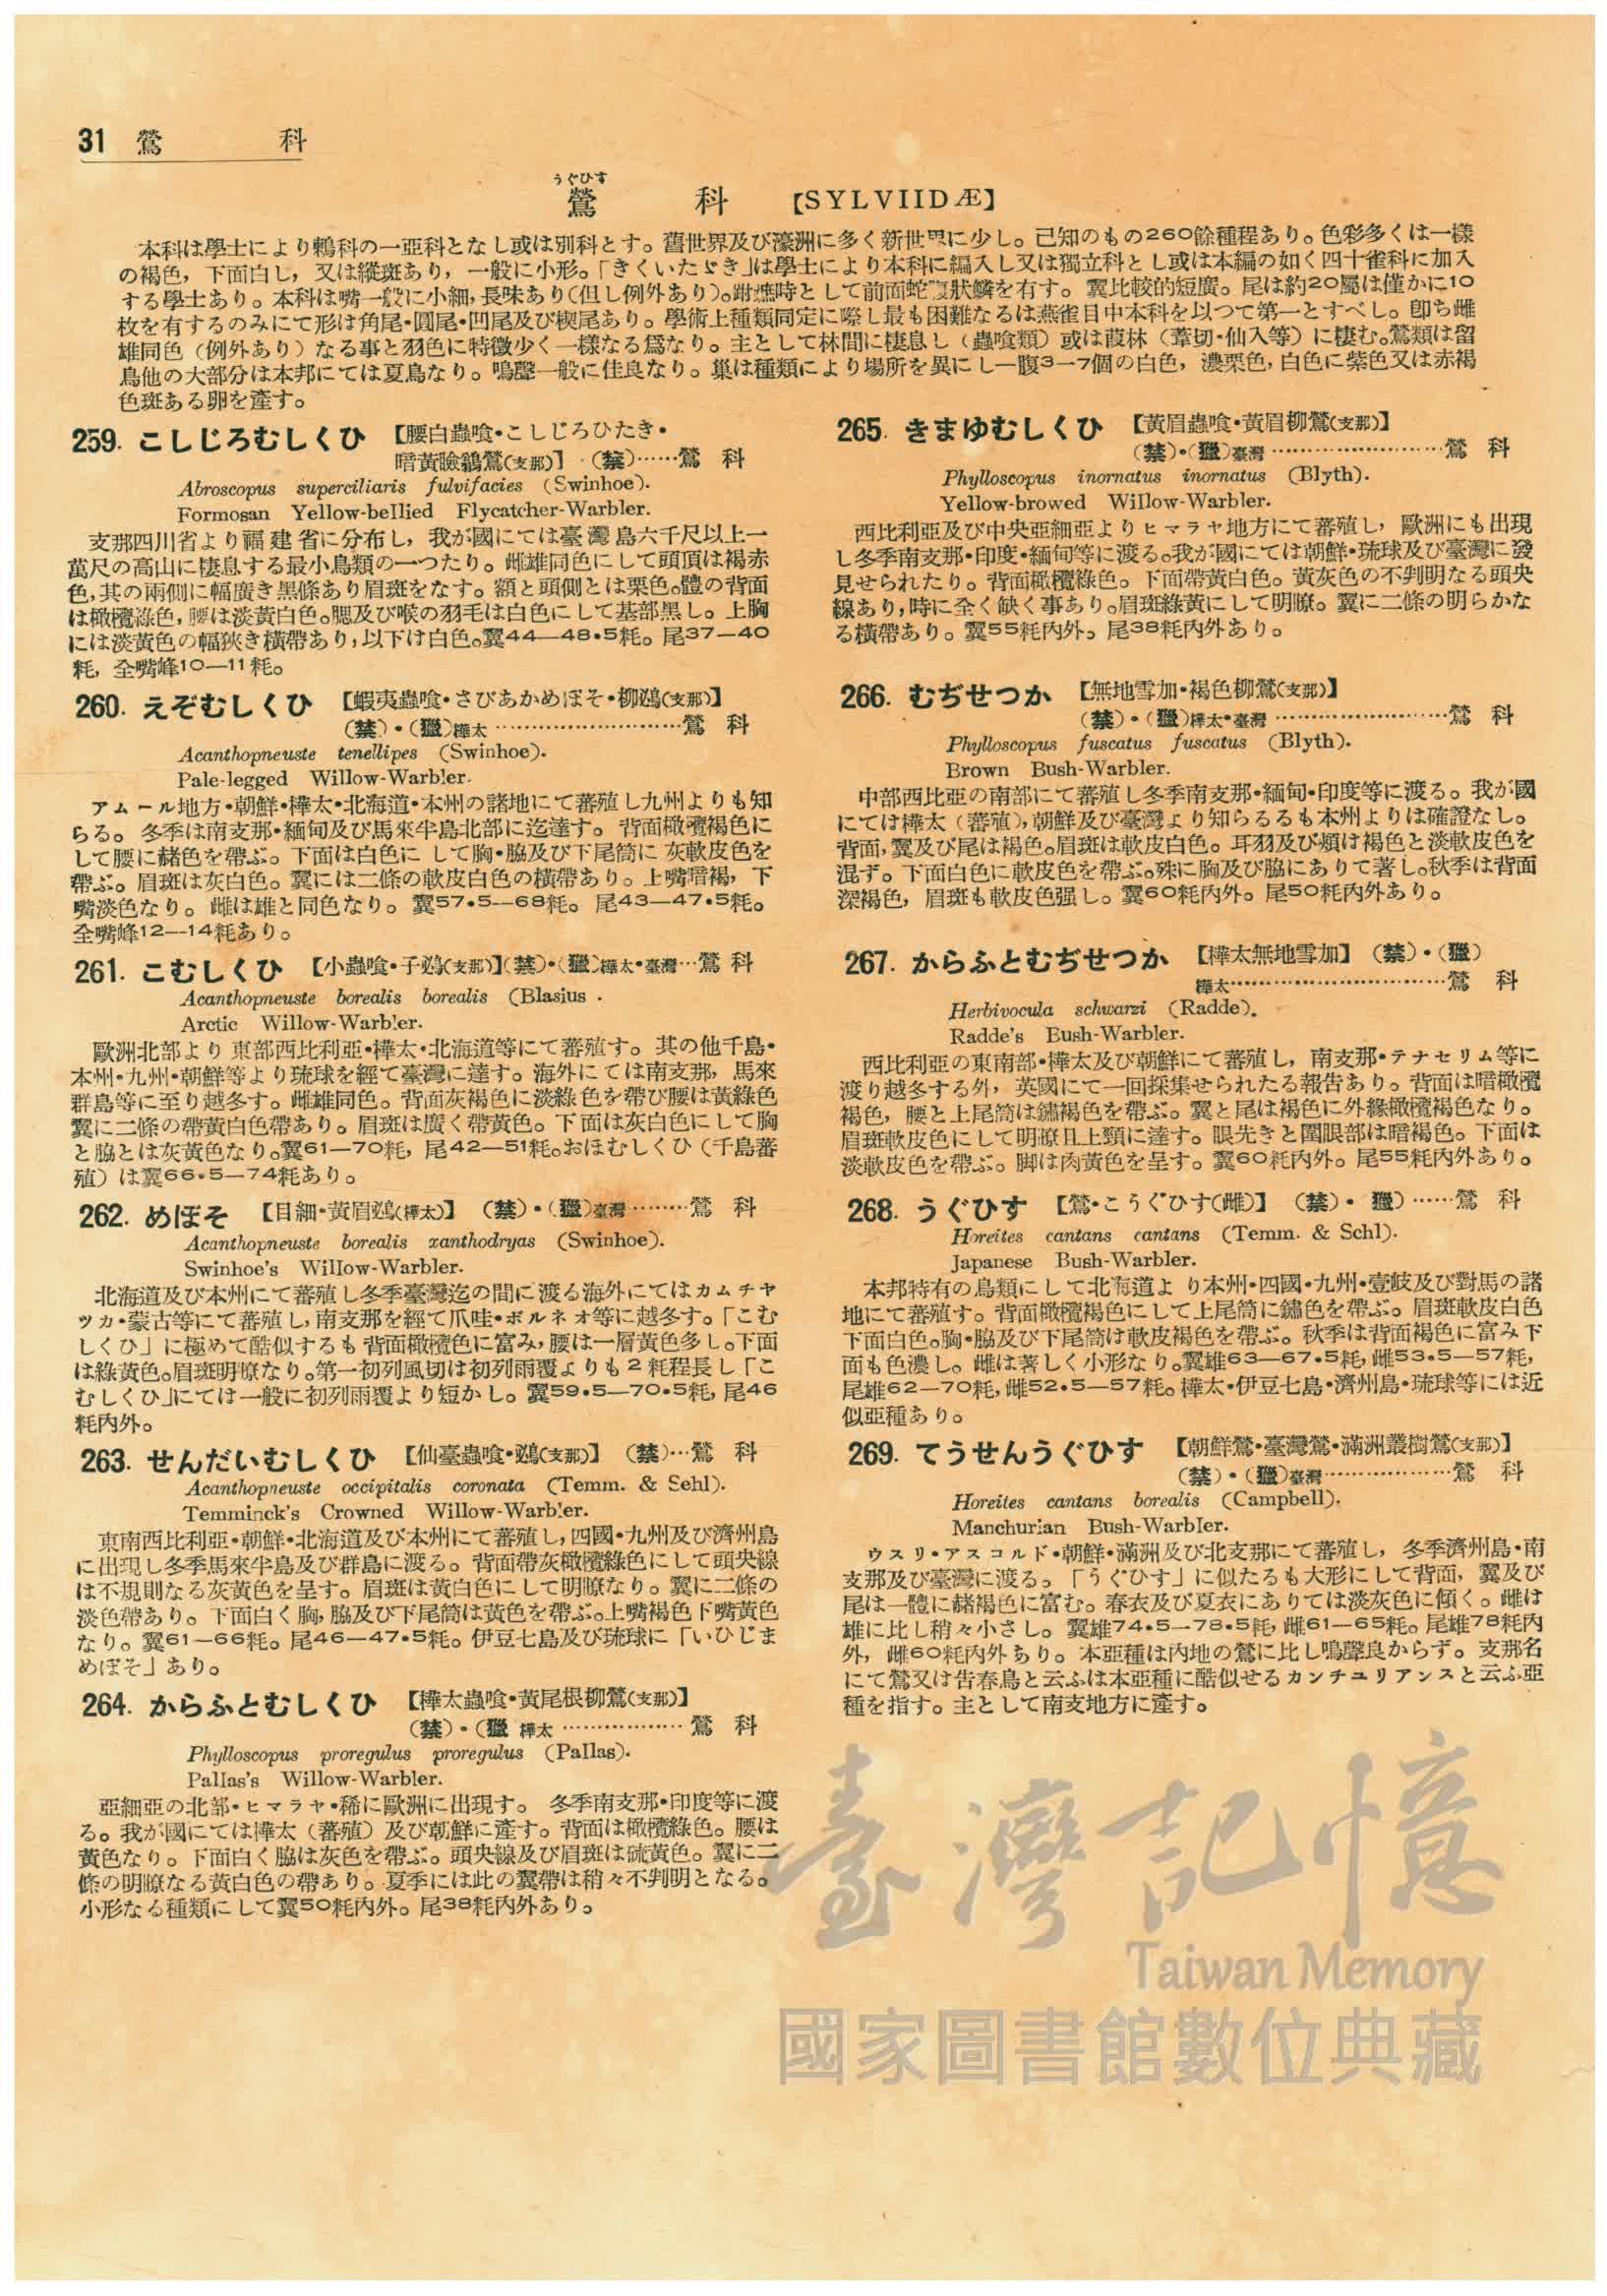 31 鶯 科
うぐひす
鶯 科 【SYLVIIDÆ】
本科は學士により鶫科の一亞科となし或は別科とす。舊世界及び濠洲に多く新世界に少し。己知のもの260餘種程あり。色彩多くは一樣
の褐色，下面白し，又は縱斑あり，一般に小形。「きくいたゞき」は學士により本科に編入し又は獨立科とし或は本編の如く四十雀科に加入
する學士あり。本科は嘴一般に小細，長味あり（但し例外あり）。跗蹠時として前面蛇腹狀鱗を有す。翼比較的短廣。尾は約20屬は僅かに10
枚を有するのみにて形は角尾・圓尾・凹尾及び楔尾あり。學術上種類同定に際し最も困難なるは燕雀目中本科を以つて第一とすべし。卽ち雌
雄同色（例外あり）なる事と羽色に特徵少く一樣なる爲なり。主として林間に棲息し（蟲喰類）或は葭林（葦切・仙入等）に棲む。鶯類は留
鳥他の大部分は本邦にては夏鳥なり。鳴聲一般に佳良なり。巢は種類により場所を異にし一腹3－7個の白色，濃栗色，白色に紫色又は赤褐
色斑ある卵を產す。
259. こしじろむしくひ 【腰白蟲喰・こしじろひたき・
暗黃臉鶲鶯(支那)】 （禁）……鶯 科
Abroscopus superciliaris fulvifacies (Swinhoe).
Formosan Yellow-bellied Flycatcher-Warbler.
支那四川省より福建省に分布し，我が國にては臺灣島六千尺以上一
萬尺の高山に棲息する最小鳥類の一つたり。雌雄同色にして頭頂は褐赤
色，其の兩側に幅廣き黑條あり眉斑をなす。額と頭側とは栗色。體の背面
は橄欖綠色，腰は淡黃白色。腮及び喉の羽毛は白色にして基部黑し。上胸
には淡黃色の幅狹き橫帶あり，以下は白色。翼44—48・5粍。尾37－40
粍，全嘴峰10—11粍。
260. えぞむしくひ 【蝦夷蟲喰・さびあかめぼそ・柳鵐(支那)】
（禁）・（獵）樺太 ………………………鶯 科
Acanthopneuste tenellipes (Swinhoe).
Pale-legged Willow-Warbler.
アムール地方・朝鮮・樺太・北海道・本州の諸地にて蕃殖し九州よりも知
らる。冬季は南支那・緬甸及び馬來半島北部に迄達す。背面橄欖褐色に
して腰に赭色を帶ぶ。下面は白色にして胸・脇及び下尾筒に灰軟皮色を
帶ぶ。眉斑は灰白色。翼には二條の軟皮白色の橫帶あり。上嘴暗褐，下
嘴淡色なり。雌は雄と同色なり。翼57・5—68粍。尾43—47・5粍。
全嘴峰12—14粍あり。
261. こむしくひ 【小蟲喰・子鵐(支那)】（禁）・（獵）樺太・臺灣…鶯 科
Acanthopneuste borealis borealis (Blasius .
Arctic Willow-Warbler.
歐洲北部より東部西比利亞・樺太・北海道等にて蕃殖す。其の他千島・
本州・九州・朝鮮等より琉球を經て臺灣に達す。海外にては南支那，馬來
群島等に至り越冬す。雌雄同色。背面灰褐色に淡綠色を帶び腰は黃綠色
翼に二條の帶黃白色帶あり。眉斑は廣く帶黃色。下面は灰白色にして胸
と脇とは灰黃色なり。翼61－70粍，尾42—51粍。おほむしくひ（千島蕃
殖）は翼66・5－74粍あり。
262. めぼそ 【目細・黃眉鵐(樺太)】 （禁）・（獵）臺灣………鶯 科
Acanthopneuste borealis xanthodryas (Swinhoe).
Swinhoe's Willow-Warbler.
北海道及び本州にて蕃殖し冬季臺灣迄の間に渡る海外にてはカムチヤ
ツカ・蒙古等にて蕃殖し，南支那を經て爪哇・ボルネオ等に越冬す。「こむ
しくひ」に極めて酷似するも背面橄欖色に富み，腰は一層黃色多し。下面
は綠黃色。眉斑明瞭なり。第一初列風切は初列雨覆よりも2粍程長し「こ
むしくひ」にては一般に初列雨覆より短かし。翼59・5—70・5粍，尾46
粍內外。
263. せんだいむしくひ 【仙臺蟲喰・鵐(支那)】 （禁）…鶯 科
Acanthopneuste occipitalis coronata (Temm. & Sehl).
Temminck's Crowned Willow-Warbler.
東南西比利亞・朝鮮・北海道及び本州にて蕃殖し，四國・九州及び濟州島
に出現し冬季馬來半島及び群島に渡る。背面帶灰橄欖綠色にして頭央線
は不規則なる灰黃色を呈す。眉斑は黃白色にして明瞭なり。翼に二條の
淡色帶あり。下面白く胸，脇及び下尾筒は黃色を帶ぶ。上嘴褐色下嘴黃色
なり。翼61－66粍。尾46－47・5粍。伊豆七島及び琉球に「いひじま
めぼそ」あり。
264. からふとむしくひ 【樺太蟲喰・黃尾根柳鶯(支那)】
（禁）・（獵 樺太 ………………鶯 科
Phylloscopus proregulus proregulus (Pallas).
Pallas's Willow-Warbler.
亞細亞の北部・ヒマラヤ・稀に歐洲に出現す。冬季南支那・印度等に渡
る。我が國にては樺太（蕃殖）及び朝鮮に產す。背面は橄欖綠色。腰は
黃色なり。下面白く脇は灰色を帶ぶ。頭央線及び眉斑は硫黃色。翼に二
條の明瞭なる黃白色の帶あり。夏季には此の翼帶は稍々不判明となる。
小形なる種類にして翼50粍內外。尾38粍內外あり。
265. きまゆむしくひ 【黃眉蟲喰・黃眉柳鶯(支那)】
（禁）・（獵）臺灣 ……………………鶯 科
Phylloscopus inornatus inornatus (Blyth).
Yellow-browed Willow-Warbler.
西比利亞及び中央亞細亞よりヒマラヤ地方にて蕃殖し，歐洲にも出現
し冬季南支那・印度・緬甸等に渡る。我が國にては朝鮮・琉球及び臺灣に發
見せられたり。背面橄欖綠色。下面帶黃白色。黃灰色の不判明なる頭央
線あり，時に全く缺く事あり。眉斑綠黃にして明瞭。翼に二條の明らかな
る橫帶あり。翼55粍內外。尾38粍內外あり。
266. むぢせつか 【無地雪加・褐色柳鶯(支那)】
（禁）・（獵）樺太・臺灣 ……………………鶯 科
Phylloscopus fuscatus fuscatus (Blyth).
Brown Bush-Warbler.
中部西比亞の南部にて蕃殖し冬季南支那・緬甸・印度等に渡る。我が國
にては樺太（蕃殖），朝鮮及び臺灣より知らるるも本州よりは確證なし。
背面，翼及び尾は褐色。眉斑は軟皮白色。耳羽及び頰は褐色と淡軟皮色を
混ず。下面白色に軟皮色を帶ぶ。殊に胸及び脇にありて著し。秋季は背面
深褐色，眉斑も軟皮色强し。翼60粍內外。尾50粍內外あり。
267. からふとむぢせつか 【樺太無地雪加】 （禁）・（獵）
樺太…………………………鶯 科
Herbivocula schwarzi (Radde).
Radde's Bush-Warbler.
西比利亞の東南部・樺太及び朝鮮にて蕃殖し，南支那・テナセリム等に
渡り越冬する外，英國にて一回採集せられたる報告あり。背面は暗橄欖
褐色，腰と上尾筒は鏽褐色を帶ぶ。翼と尾は褐色に外緣橄欖褐色なり。
眉斑軟皮色にして明瞭且上頸に達す。眼先きと圍眼部は暗褐色。下面は
淡軟皮色を帶ぶ。脚は肉黃色を呈す。翼60粍內外。尾55粍內外あり。
268. うぐひす 【鶯・こうぐひす(雌)】 （禁）・ 獵）……鶯 科
Horeites cantans cantans (Temm. & Schl).
Japanese Bush-Warbler.
本邦特有の鳥類にして北海道より本州・四國・九州・壹岐及び對馬の諸
地にて蕃殖す。背面橄欖褐色にして上尾筒に鏽色を帶ぶ。眉斑軟皮白色
下面白色。胸・脇及び下尾筒は軟皮褐色を帶ぶ。秋季は背面褐色に富み下
面も色濃し。雌は著しく小形なり。翼雄63—67・5粍，雌53・5—57粍，
尾雄62－70粍，雌52・5—57粍。樺太・伊豆七島・濟州島・琉球等には近
似亞種あり。
269. てうせんうぐひす 【朝鮮鶯・臺灣鶯・滿洲叢樹鶯(支那)】
（禁）・（獵）臺灣………………鶯 科
Horeites cantans borealis (Campbell).
Manchurian Bush-Warbler.
ウスリ・アスコルド・朝鮮・滿洲及び北支那にて蕃殖し，冬季濟州島・南
支那及び臺灣に渡る。「うぐひす」に似たるも大形にして背面，翼及び
尾は一體に赭褐色に富む。春衣及び夏衣にありては淡灰色に傾く。雌は
雄に比し稍々小さし。翼雄74・5—78・5粍，雌61—65粍。尾雄78粍內
外，雌60粍內外あり。本亞種は內地の鶯に比し鳴聲良からず。支那名
にて鶯又は告春鳥と云ふは本亞種に酷似せるカンチユリアンスと云ふ亞
種を指す。主として南支地方に產す。
臺灣記憶
Taiwan Memory
國家圖書館數位典藏